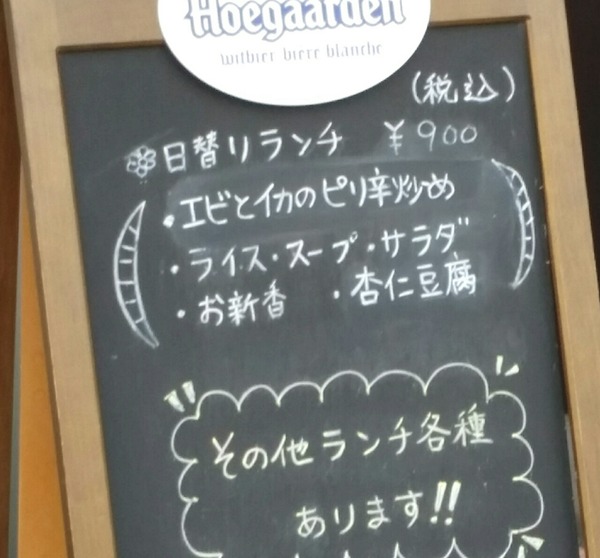 Hoegaarden
witbier bière blanche
(税込)
日替りランチ ¥900
・エビとイカのピリ辛炒め
・ライス・スープ・サラダ
・お新香 ・杏仁豆腐
その他ランチ各種
あります!!